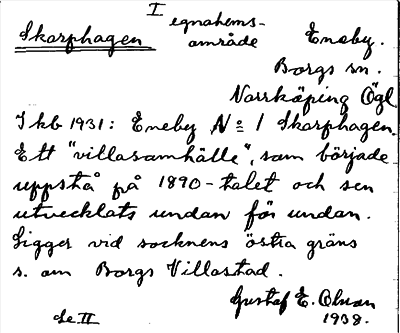 I egnahems-
Skarphagen område Eneby.
Borgs sn.
Norrköping Ögl
I kb 1931: Eneby No 1 Skarphagen.
Ett "villasamhälle", som började
uppstå på 1890-talet och sen
utvecklats undan för undan.
Ligger vid socknens östra gräns
s. om Borgs Villastad.
Gustaf E. Olman
1938.
Se II